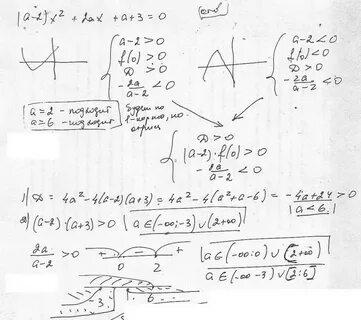 (a-2)x² + 2ax + a+3 = 0
{ a-2>0
f(0)>0
D>0
-2a/(a-2)<0
{ a-2<0
f(0)<0
D>0
-2a/(a-2)<0
a=2 - подходит
a=6 - подходит
{ D>0
(a-2)·f(0)>0
-2a/(a-2)<0
1) D = 4a²-4(a-2)(a+3) = 4a²-4(a²+a-6) = -4a+24>0
a<6.
2) (a-2)·(a+3)>0 a∈(-∞;-3)∪(2+∞)
2a/(a-2)>0 + - + 0 2 a∈(-∞;0)∪(2+∞)
-3 2 6 a∈(-∞-3)∪[2;6]